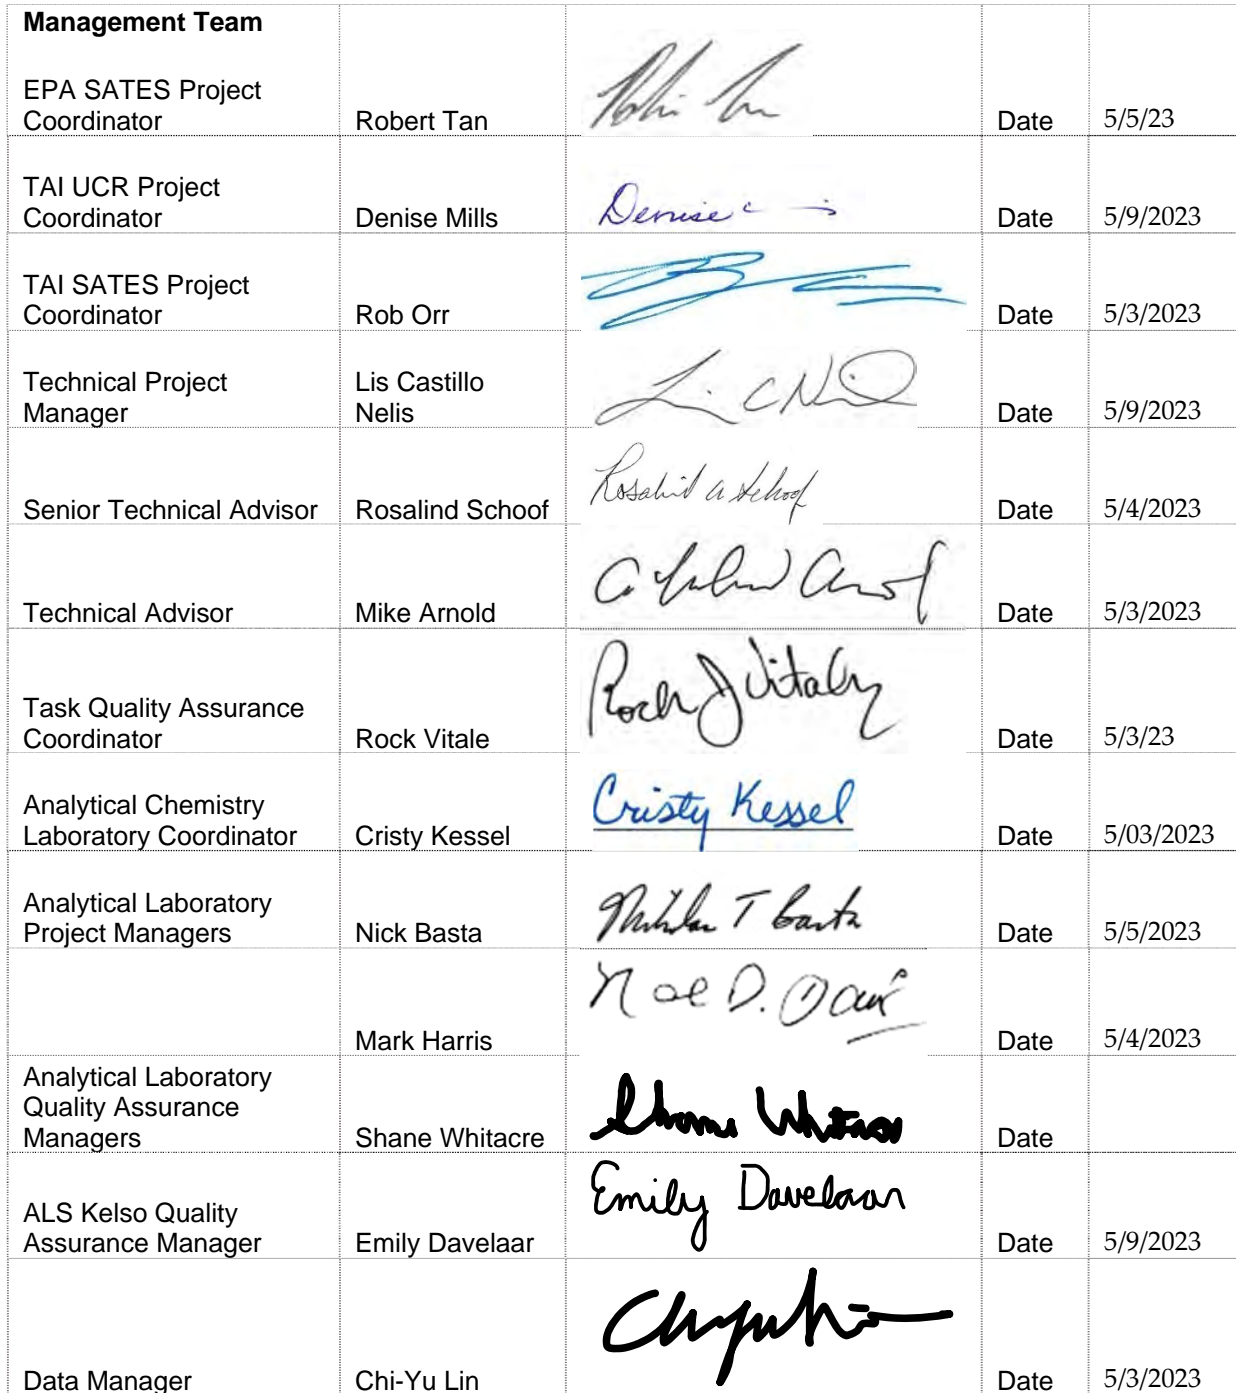 Management Team
EPA SATES Project
Coordinator
Robert Tan
Date
5/5/23
TAI UCR Project
Coordinator
Denise Mills
Denise
Date
5/9/2023
TAI SATES Project
Coordinator
Rob Orr
Date
5/3/2023
Technical Project
Manager
Lis Castillo
Nelis
Date
5/9/2023
Senior Technical Advisor
Rosalind Schoof
Rosalind A Schoof
Date
5/4/2023
Technical Advisor
Mike Arnold
Date
5/3/2023
Task Quality Assurance
Coordinator
Rock Vitale
Rock J Vitale
Date
5/3/23
Analytical Chemistry
Laboratory Coordinator
Cristy Kessel
Cristy Kessel
Date
5/03/2023
Analytical Laboratory
Project Managers
Nick Basta
Nicholas T Basta
Date
5/5/2023
Mark Harris
Date
5/4/2023
Analytical Laboratory
Quality Assurance
Managers
Shane Whitacre
Shane Whitacre
Date
ALS Kelso Quality
Assurance Manager
Emily Davelaar
Emily Davelaar
Date
5/9/2023
Data Manager
Chi-Yu Lin
Date
5/3/2023